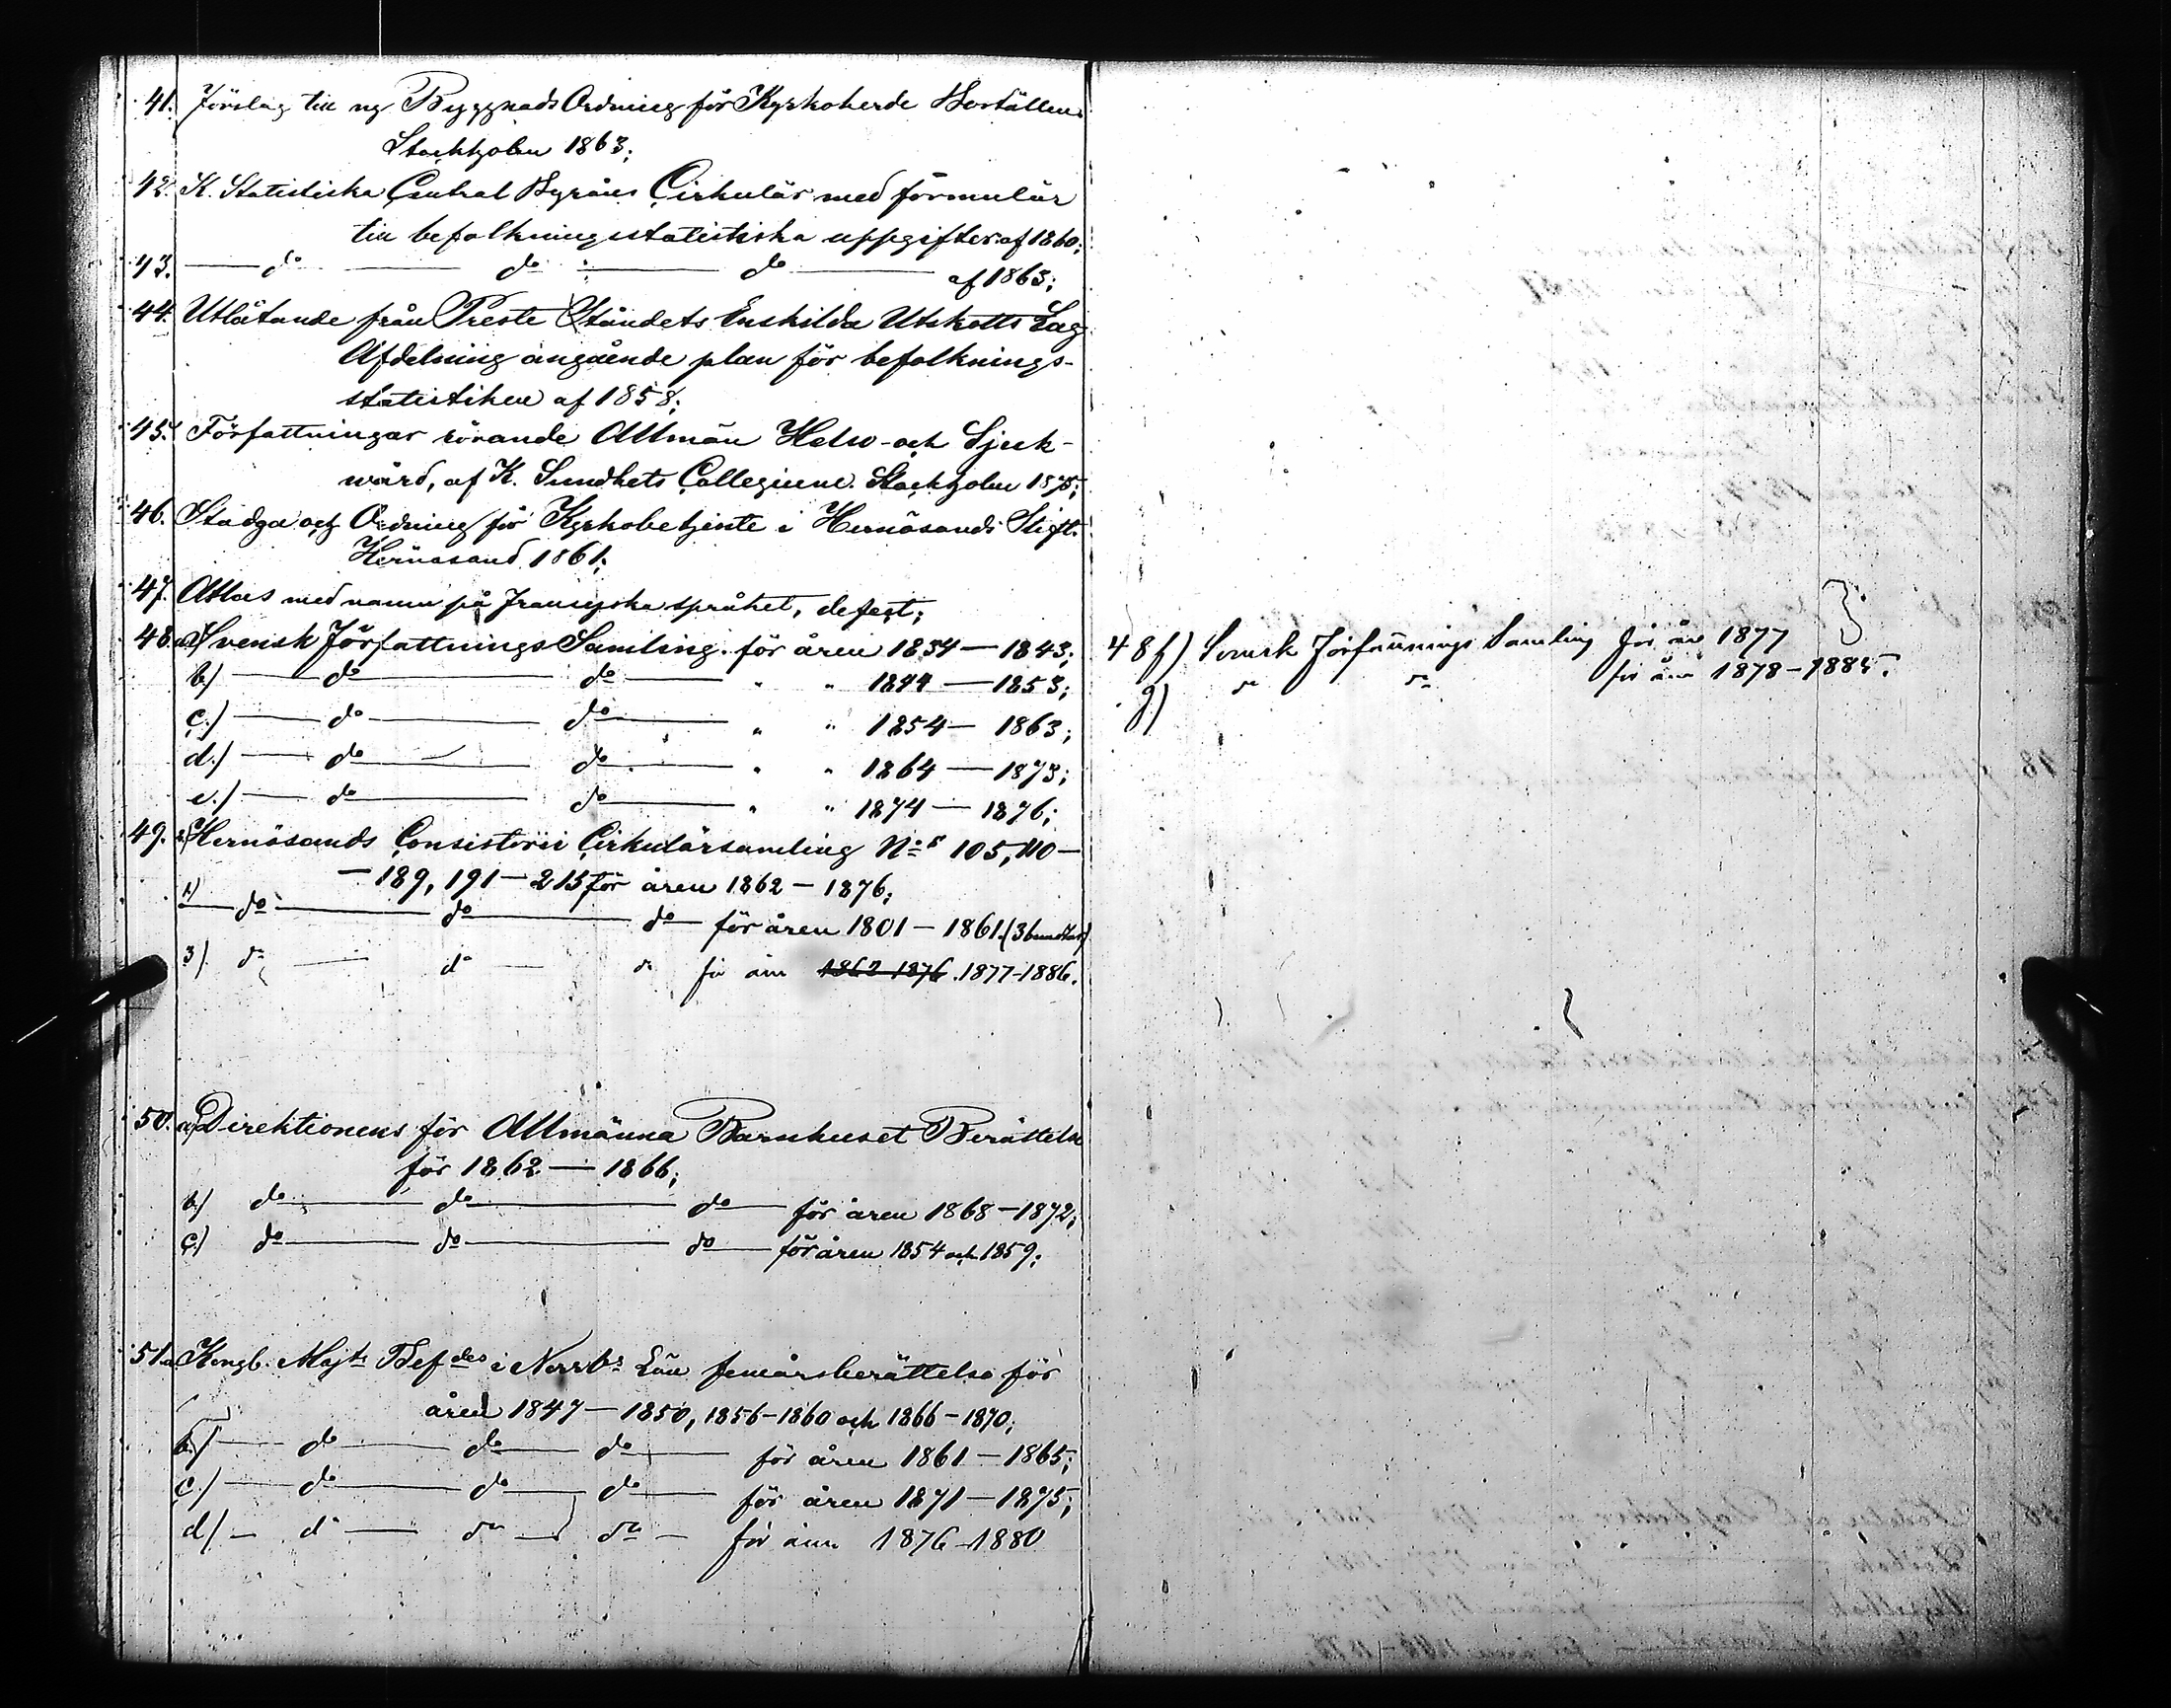 41. Förslag till ny Byggnads Ordning för Kyrkoherde Boställen.
Stockholm 1863;
42. K. Statistiska Central Byråns Cirkulär med formulär
till befolkningsstatistiska uppgifter af 1860;
43. — do — do — do — af 1863;
44. Utlåtande från Preste Ståndets Enskilda Utskotts Lag
Afdelning angående plan för befolknings-
statistiken af 1858;
45. Författningar rörande Allmän Helso- och Sjuk-
wård, af K. Sundhets Collegium. Stockholm 1875;
46. Stadga och Ordning för Kyrkobetjente i Hernösands Stift.
Hernösand 1861;
47. Atlas med namn på Fransyska språket, defect;
48. a) Svensk Författnings Samling för åren 1834 — 1843;
b) — do — do — " " 1844 — 1853;
c.) — do — do — " " 1854 — 1863;
d.) — do — do — " " 1864 — 1873;
e.) — do — do — " " 1874 — 1876;
49. Hernösands Consistorii Cirkulärsamling No s 105, 110 —
— 189, 191 — 215 för åren 1862 — 1876;
— do — do — do — för åren 1801 — 1861. (3 bundtar)
3) do — do — do för åren 1862-1876. 1877-1886.
50. a) Direktionens för Allmänna Barnhuset Berättelse
för 1862 — 1866;
b) do — do — do — för åren 1868 — 1872;
c) do — do — do — för åren 1854 och 1859;
51. a Kongl. Majts Befdes i Norrbs Län femårsberättelse för
åren 1847 — 1850, 1856 — 1860 och 1866 — 1870;
b) — do — do — do — för åren 1861 — 1865;
c.) — do — do — do — för åren 1871 — 1875;
d) — do — do — do — för åren 1876-1880
48 f) Svensk Författnings Samling för år 1877
g) do do för åren 1878-1885.